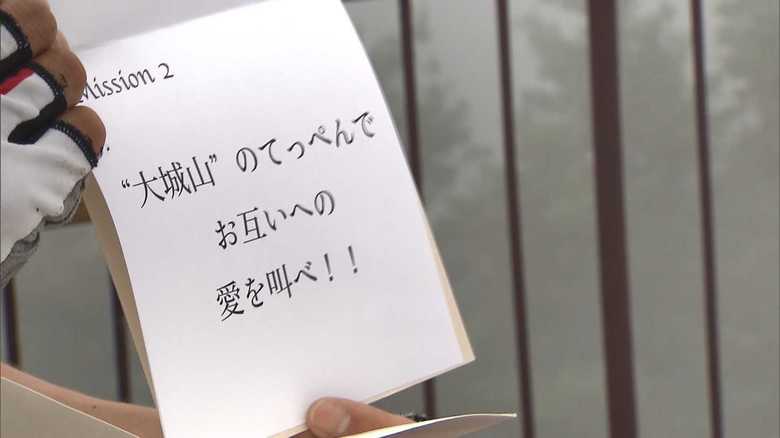 Mission 2
“大城山”のてっぺんで
お互いへの
愛を叫べ！！